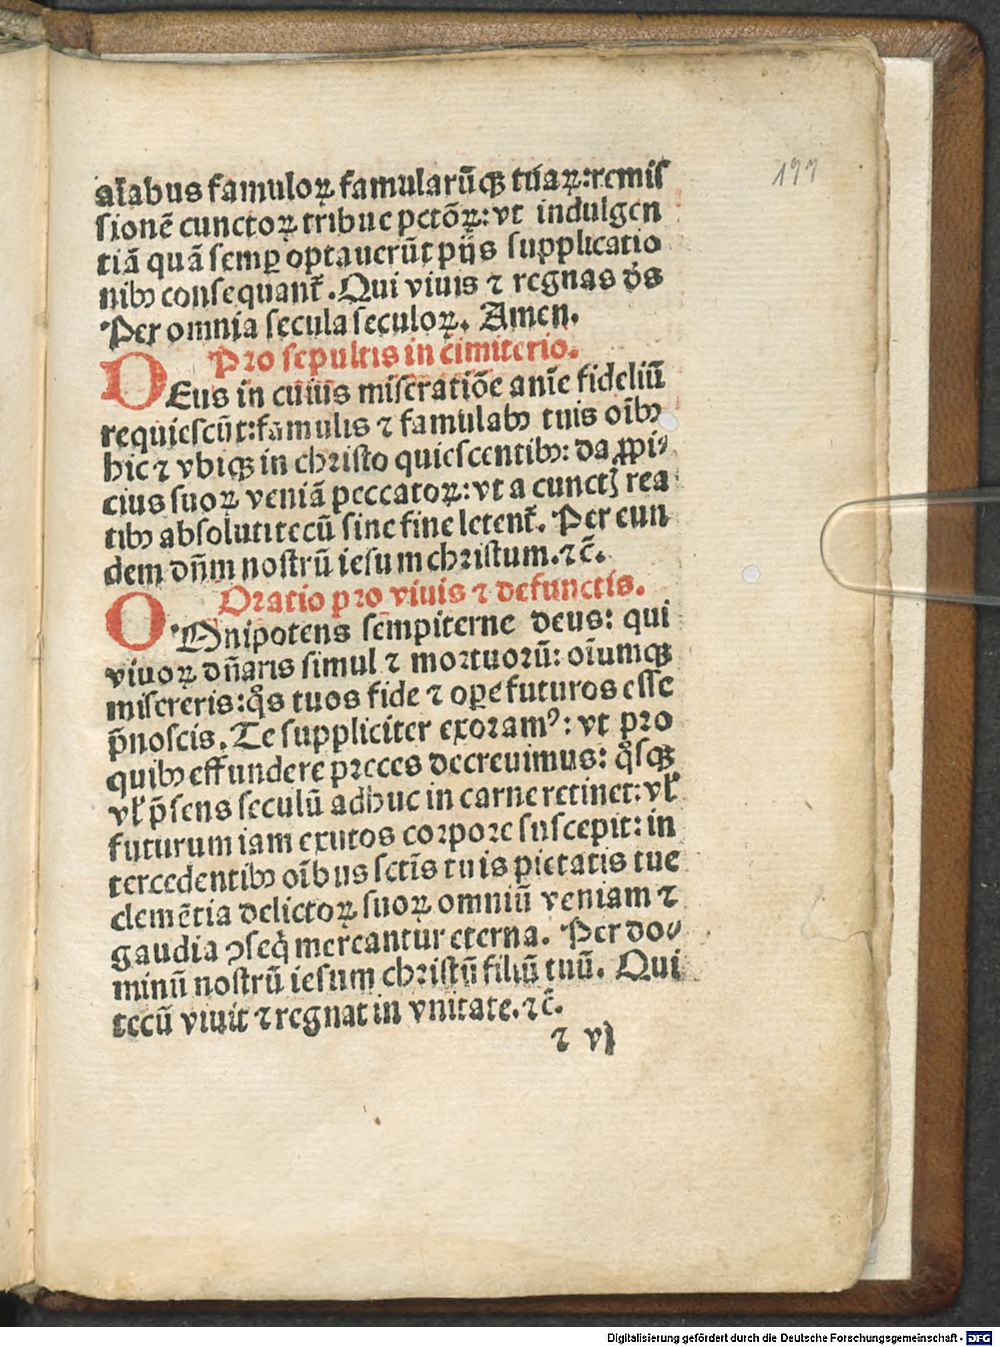 177
al̄abus famuloꝝ famularūqꝫ tuaꝝ: remiſ
ſionē cunctoꝝ tribue pctōꝝ: vt indulgen
tiā quā ſemꝑ optauerūt pijs ſupplicatio
nibꝰ conſequant᷑. Qui viuis ⁊ regnas d̄s
Per omnia ſecula ſeculoꝝ. Amen.
Pro ſepultis in cimiterio.
DEus in cuius miſeratiōe anīe fideliū
requieſcūt: famulis ⁊ famulabꝰ tuis oībꝰ
hic ⁊ vbiqꝫ in chriſto quieſcentibꝰ: da ꝓpi⸗
cius ſuoꝝ veniā peccatoꝝ: vt a cunctꝭ rea
tibꝰ abſoluti tecū ſine fine letent᷑. Per eun
dem dn̄m noſtrū ieſum chriſtum. ⁊c̄.
Oratio pro viuis ⁊ defunctis.
OMnipotens ſempiterne deus: qui
viuoꝝ dn̄aris ſimul ⁊ mortuorū: oīumqꝫ
miſereris: qͦs tuos fide ⁊ oꝑe futuros eſſe
p̄noſcis. Te ſuppliciter exoramꝰ: vt pro
quibꝰ effundere preces decreuimus: qͦſqꝫ
vl̓ p̄ſens ſeculū adhuc in carne retinet: vl̓
futurum iam exutos corpore ſuſcepit: in
tercedentibꝰ oībus ſctīs tuis pietatis tue
clemētia delictoꝝ ſuoꝝ omniū veniam ⁊
gaudia ꝯſeq̇ mereantur eterna. Per do⸗
minū noſtrū ieſum chriſtū filiū tuū. Qui
tecū viuit ⁊ regnat in vnitate. ⁊c̄.
⁊ vj
Digitalisierung gefördert durch die Deutsche Forschungsgemeinschaft - DFG